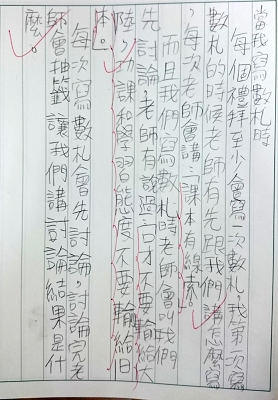 當我寫數札時
每個禮拜至少會寫一次數札，我第一次寫
數札的時候老師有先跟我們講怎麼寫
，每次老師會講：課本有線索。
而且我們寫數札時老師會叫我們
先討論，老師有說過：口才不要輸給大
陸，功課和學習態度不要輸給日
本。
每次寫數札會先討論，討論完老
師會抽籤讓我們講討論結果是什
麼。